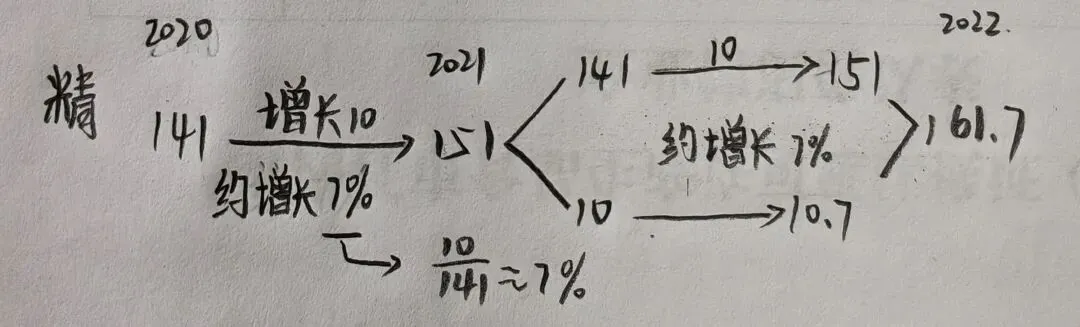 2020 2021 2022.
精 141 增长10 151 141 10 151 161.7
约增长7% 约增长7%
10 10.7
10/141≈7%